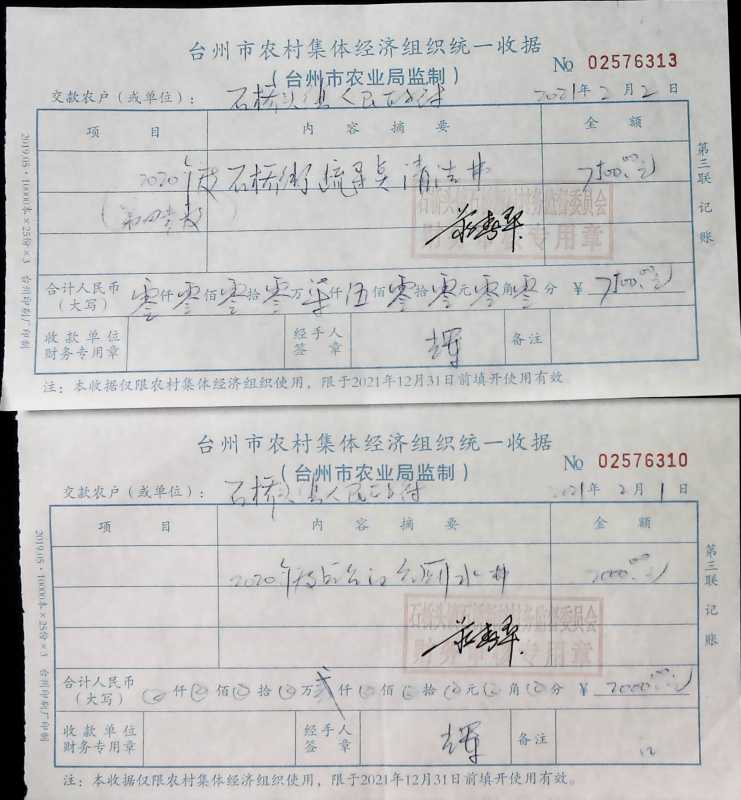 台州市农村集体经济组织统一收据
(台州市农业局监制)
No 02576313
交款农户(或单位): 石桥头镇人民政府 2021年2月2日
项目 内容摘要 金额
2020年度石桥街疏导员清洁 7500.00
(第四季度)
石桥头镇 村务监督委员会
财务审核专用章
合计人民币(大写) 零仟零佰零拾零万柒仟伍佰零拾零元零角零分 ¥ 7500.00
收款单位财务专用章 经手人签章 辉 备注
注:本收据仅限农村集体经济组织使用,限于2021年12月31日前填开使用有效
第三联 记账
2019.05·10000本×25份×3 台州印刷厂印制
台州市农村集体经济组织统一收据
(台州市农业局监制)
No 02576310
交款农户(或单位): 石桥头镇人民政府 2021年2月1日
项目 内容摘要 金额
2020年 水 2000.00
石桥头镇 村务监督委员会
财务审核专用章
合计人民币(大写) 仟 佰 拾 万贰仟 佰 拾 元 角 分 ¥ 2000.00
收款单位财务专用章 经手人签章 辉 备注
注:本收据仅限农村集体经济组织使用,限于2021年12月31日前填开使用有效。
第三联 记账
2019.05·10000本×25份×3 台州印刷厂印制